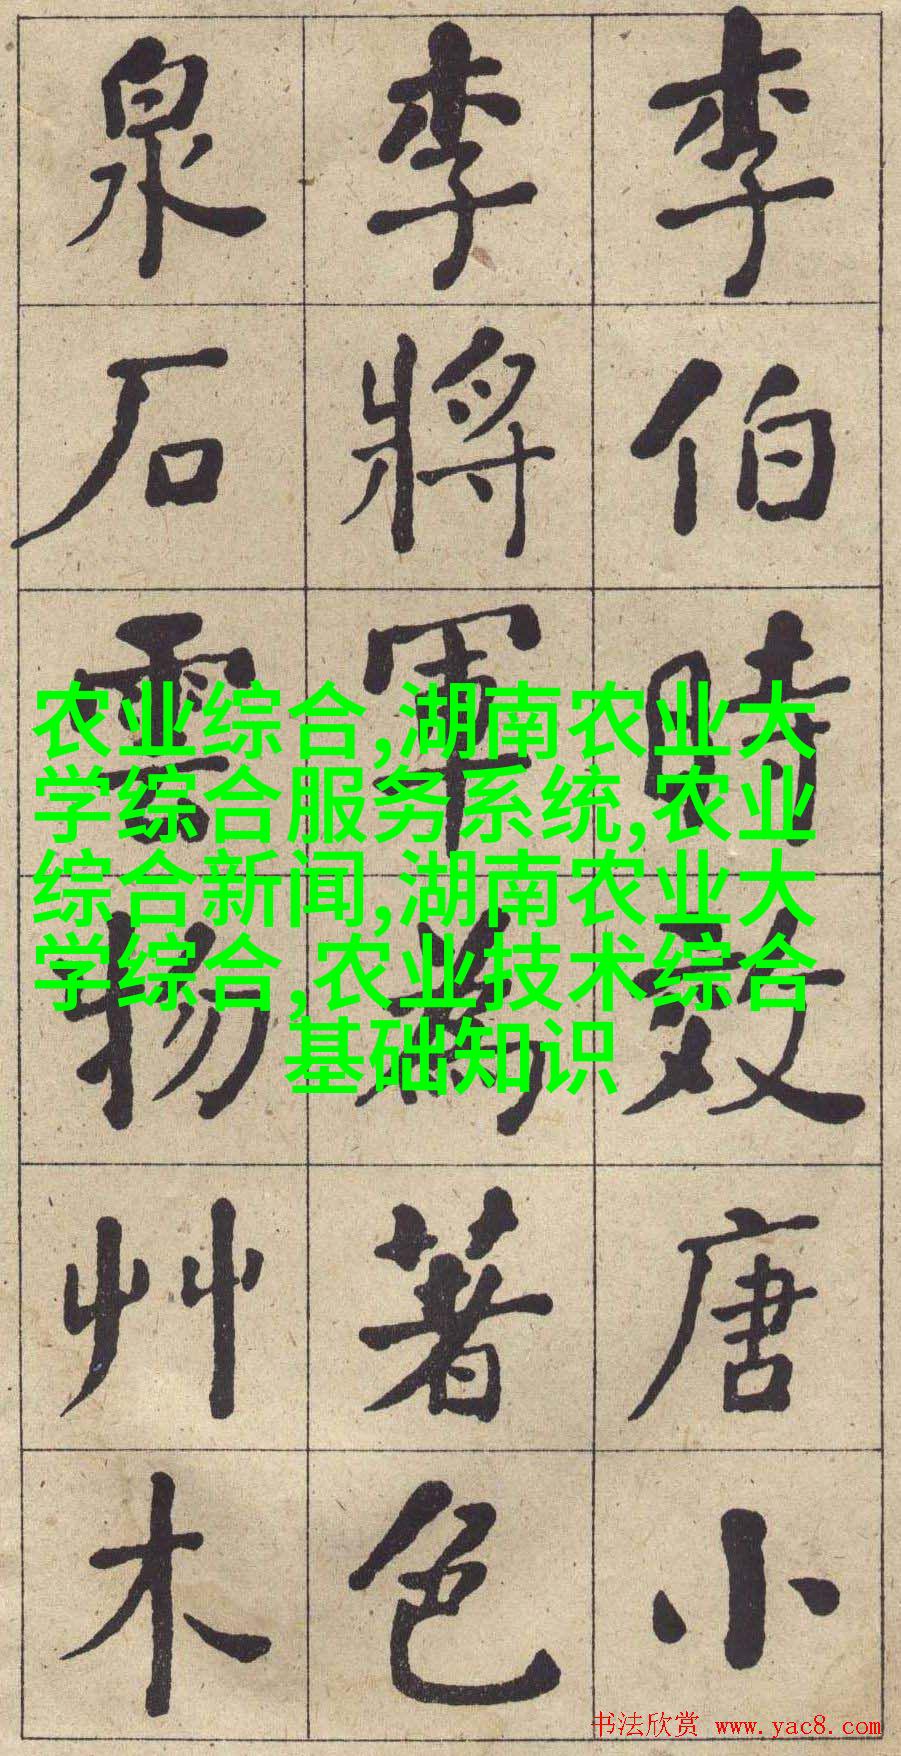 李伯時效唐小
李將軍為著色
泉石雲物艸木
农业综合,湖南农业大
学综合服务系统,农业
综合新闻,湖南农业大
学综合,农业技术综合
基础知识
书法欣赏 www.yac8.com